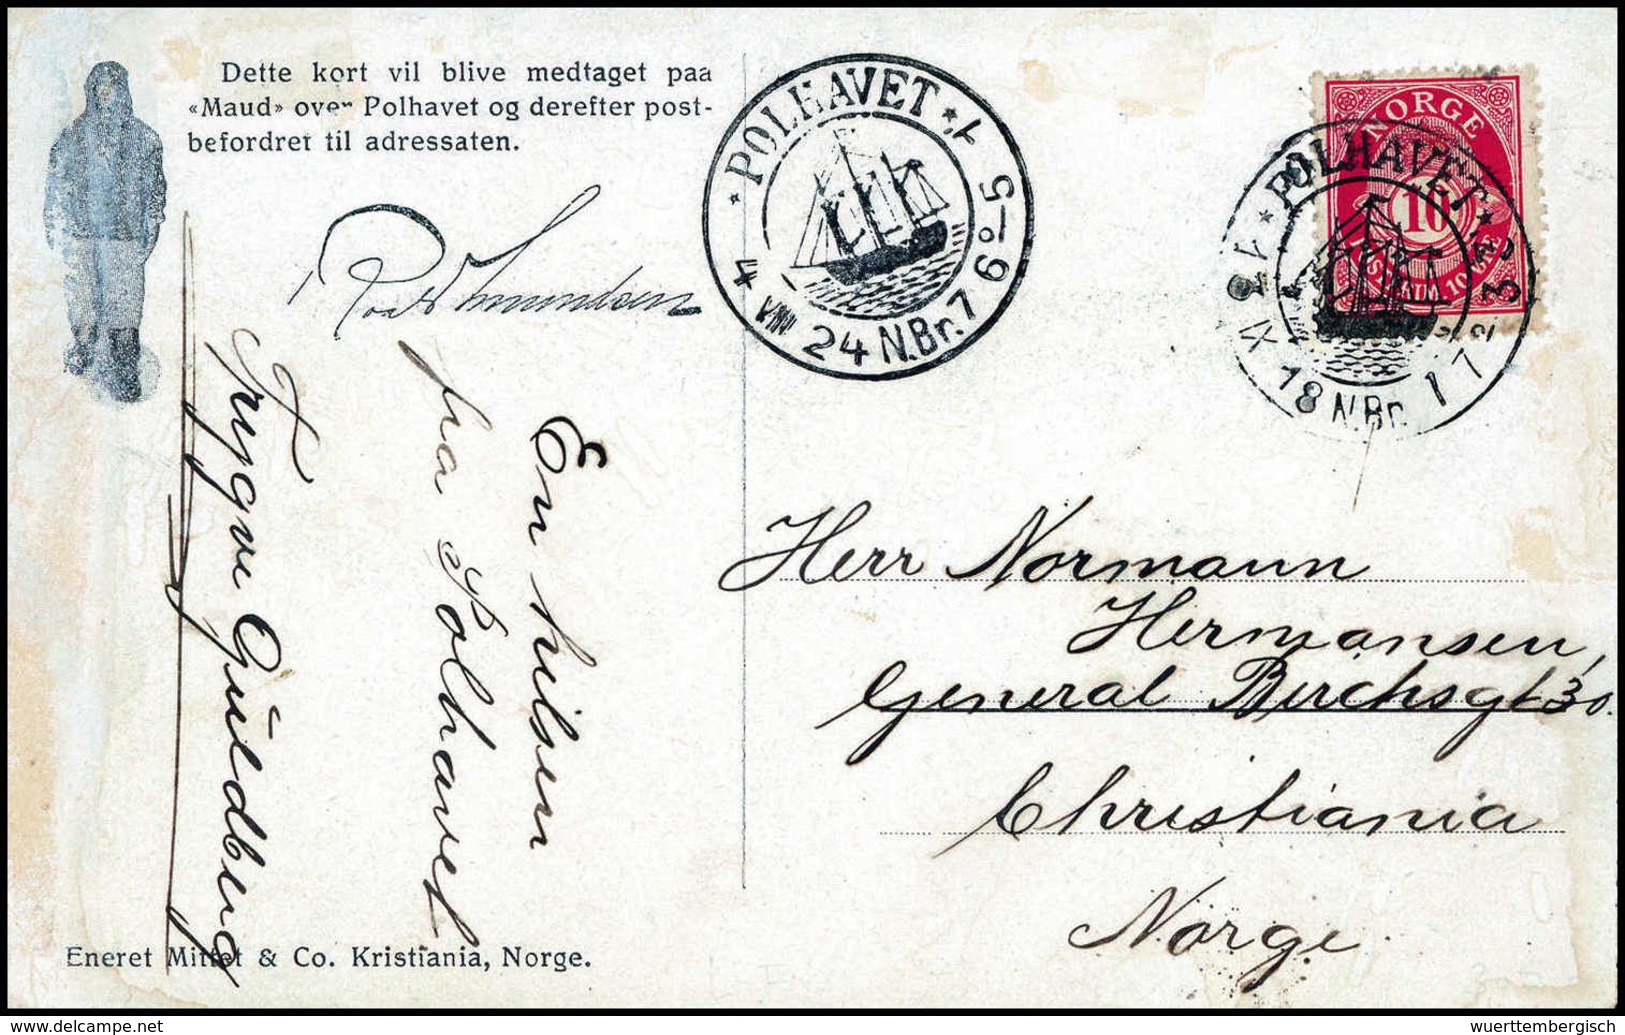 Dette kort vil blive medtaget paa
«Maud» over Polhavet og derefter post-
befordret til adressaten.
Roald Amundsen
* POLHAVET *
VIII 24 N.Br. 76°-5
* POLHAVET *
IX 18 N.Br.
NORGE
10
En hilsen
fra Polhavet
Trygve Guldberg
Herr Normann
Hermansen,
General Birchsgt 30.
Christiania
Norge.
Eneret Mittet & Co. Kristiania, Norge.
www.delcampe.net
wuerttembergisch